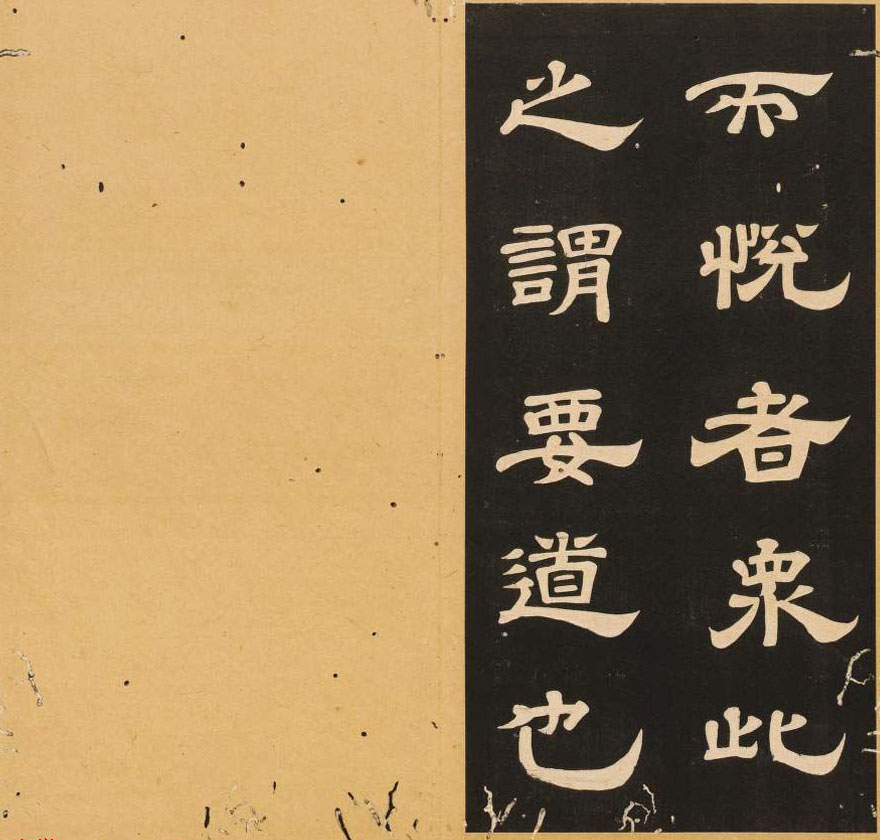 而悅者衆此
之謂要道也